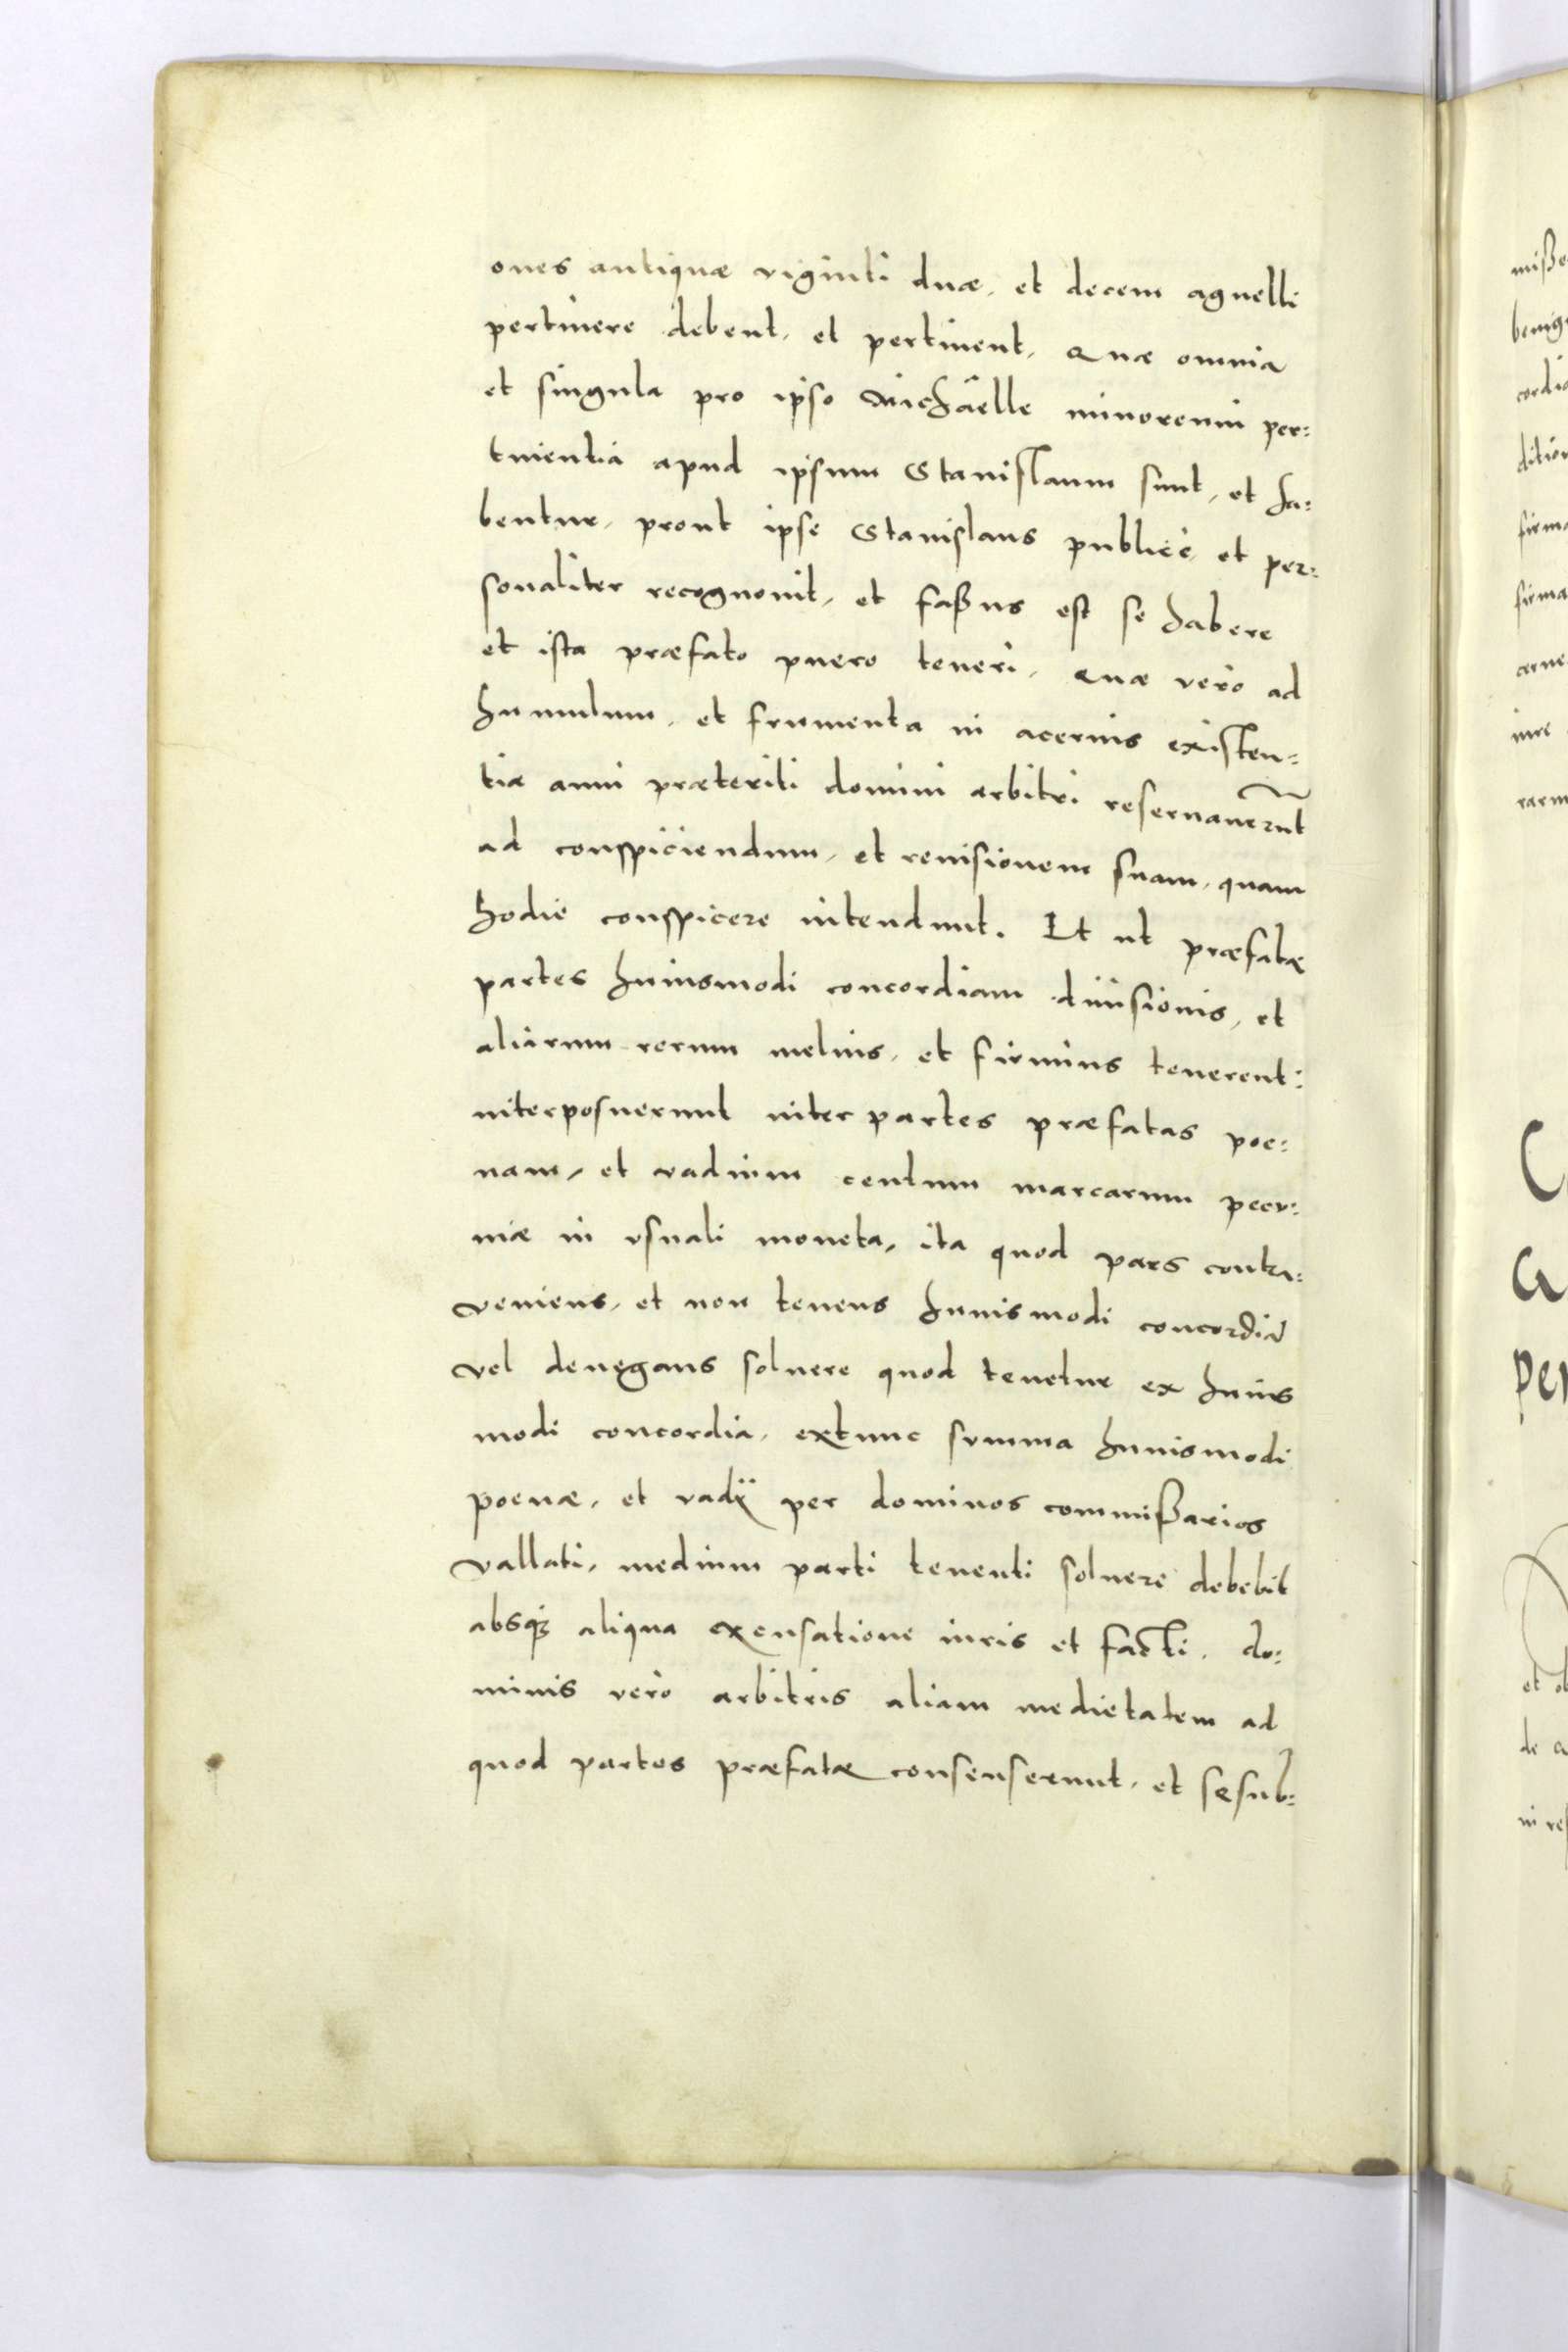 oues antiquæ viginti duæ, et decem agnelli
pertinere debent, et pertinent, Quæ omnia
et singula pro ipso Michäelle minorenni per:
tinentia apud ipsum Stanislaum sunt, et ha:
bentur, prout ipse Stanislaus publicè, et per:
sonaliter recognouit, et faßus est se habere
et ista præfato puero teneri, Quæ vero ad
humulum, et frumenta in aceruis existen:
tia anni præteriti domini arbitri reseruauerunt
ad conspiciendum, et reuisionem suam, quam
hodie conspicere intendunt. Et ut præfatæ
partes huiusmodi concordiam diuisionis, et
aliarum rerum melius, et firmius tenerent:
interposuerunt inter partes præfatas poe:
nam, et vadium centum marcarum pecu:
niæ in vsuali moneta, ita quod pars contra:
veniens, et non tenens huiusmodi concordiā
vel denegans soluere quod tenetur ex huius
modi concordia, extunc summa huiusmodi
poenæ, et vadij per dominos commißarios
vallati, medium parti tenenti soluere debebit
absqȝ aliqua excusatione iuris et facti, do:
minis vero arbitris aliam medietatem ad
quod partes præfatæ consenserunt, et se sub:
mißе
cordia
firma
firma
C
a
per
de